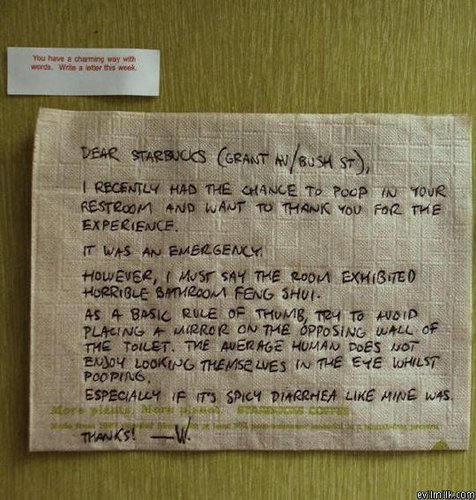 You have a charming way with
words. Write a letter this week.
DEAR STARBUCKS (GRANT AV/BUSH ST),
I RECENTLY HAD THE CHANCE TO POOP IN YOUR
RESTROOM AND WANT TO THANK YOU FOR THE
EXPERIENCE.
IT WAS AN EMERGENCY.
HOWEVER, I MUST SAY THE ROOM EXHIBITED
HORRIBLE BATHROOM FENG SHUI.
AS A BASIC RULE OF THUMB, TRY TO AVOID
PLACING A MIRROR ON THE OPPOSING WALL OF
THE TOILET. THE AVERAGE HUMAN DOES NOT
ENJOY LOOKING THEMSELVES IN THE EYE WHILST
POOPING.
ESPECIALLY IF IT'S SPICY DIARRHEA LIKE MINE WAS.
More plants. More planet. STARBUCKS COFFEE
THANKS! —W.
evilmilk.com